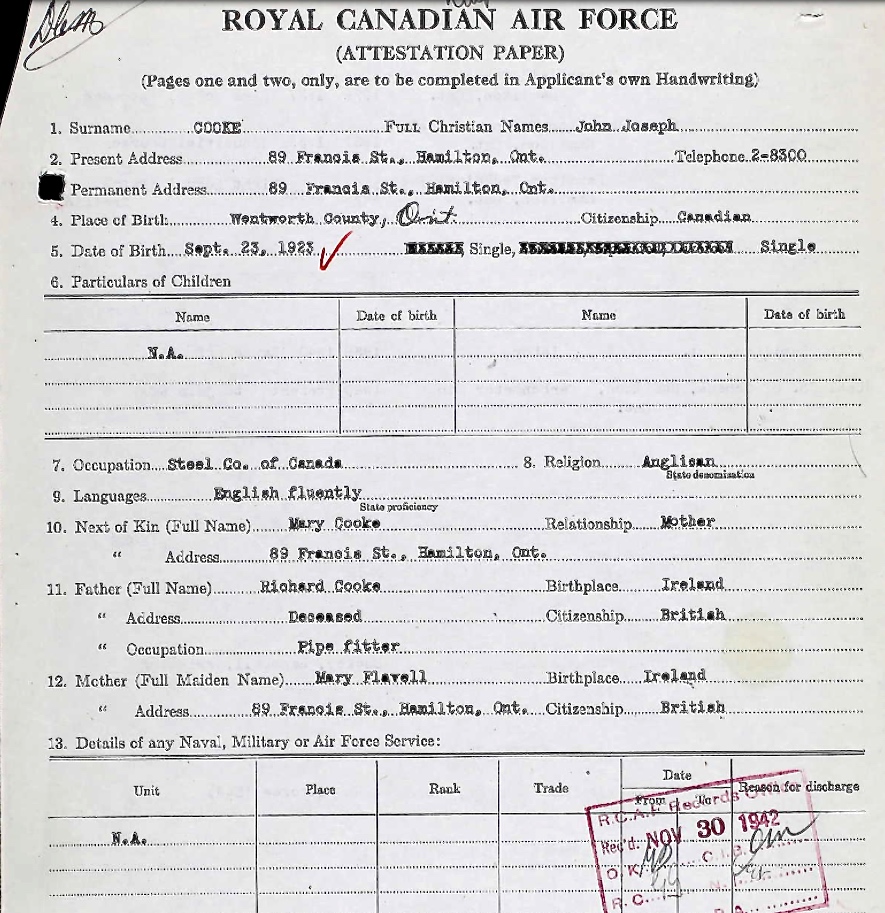 ROYAL CANADIAN AIR FORCE
(ATTESTATION PAPER)
(Pages one and two, only, are to be completed in Applicant's own Handwriting)
1. Surname COOKE FULL Christian Names John Joseph
2. Present Address 89 Francis St., Hamilton, Ont. Telephone 2-8300
Permanent Address 89 Francis St., Hamilton, Ont.
4. Place of Birth Wentworth County, Ont. Citizenship Canadian
5. Date of Birth Sept. 23, 1923 Single, Single
6. Particulars of Children
Name Date of birth Name Date of birth
N.A.
7. Occupation Steel Co. of Canada 8. Religion Anglican
State denomination
9. Languages English fluently
State proficiency
10. Next of Kin (Full Name) Mary Cooke Relationship Mother
" Address 89 Francis St., Hamilton, Ont.
11. Father (Full Name) Richard Cooke Birthplace Ireland
" Address Deceased Citizenship British
" Occupation Pipe fitter
12. Mother (Full Maiden Name) Mary Flavell Birthplace Ireland
" Address 89 Francis St., Hamilton, Ont. Citizenship British
13. Details of any Naval, Military or Air Force Service:
Unit Place Rank Trade Date Reason for discharge
From To
R.C.A.F. Records Office
N.A.
Rec'd. NOV 30 1942
O.K.
R.C.